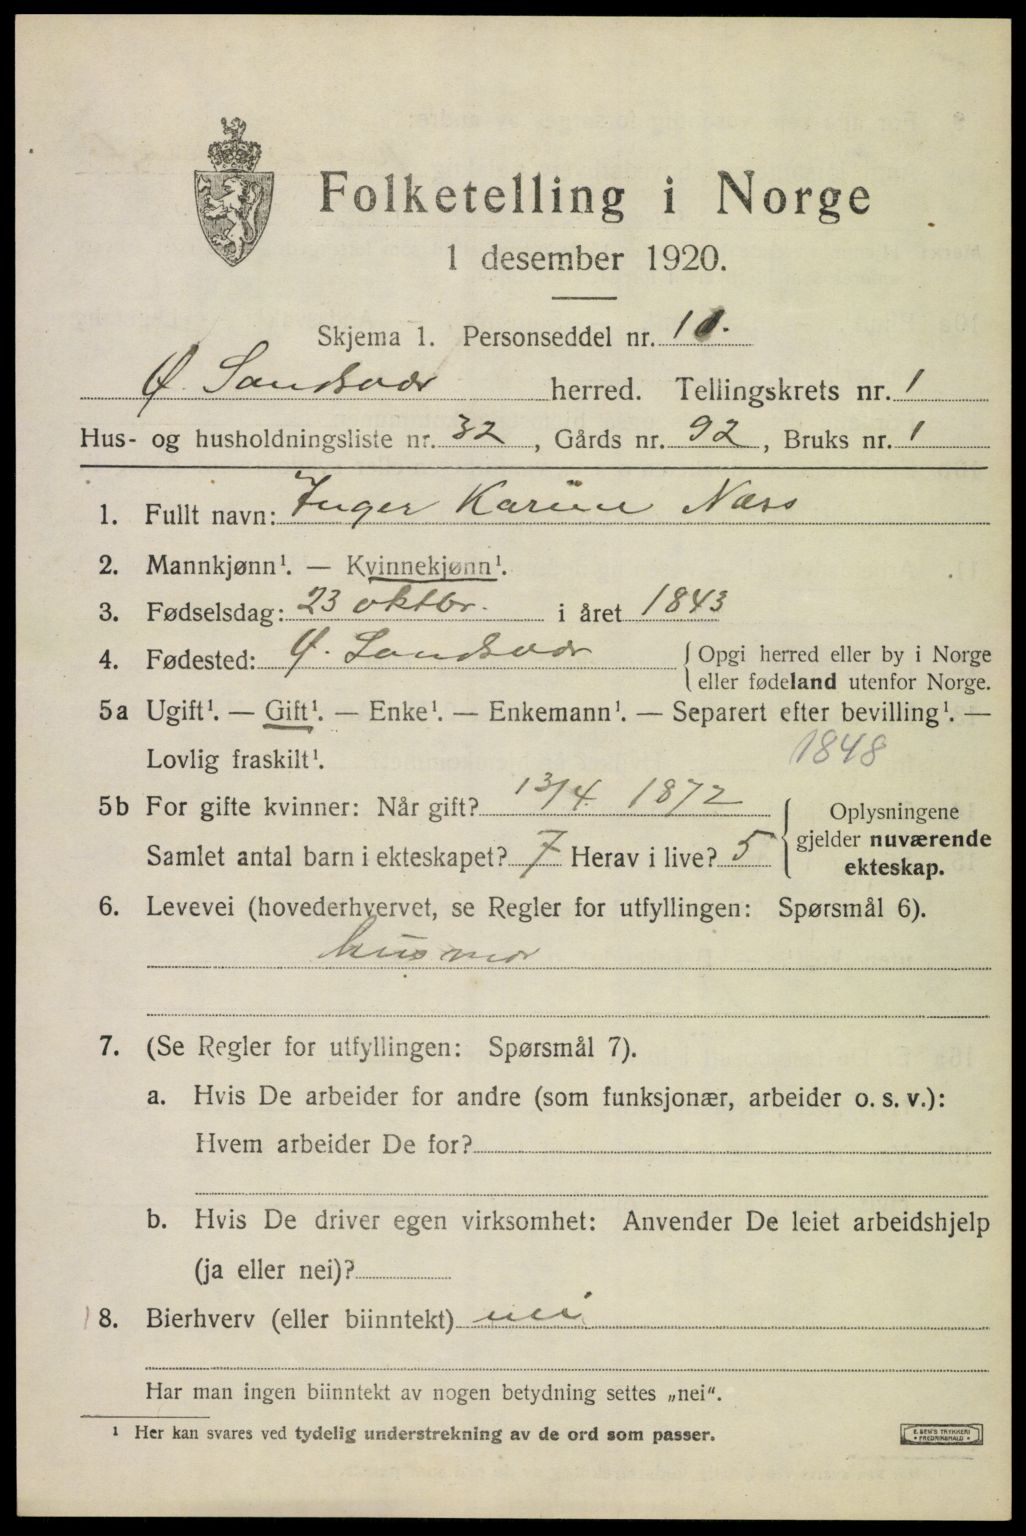 Folketelling i Norge
1 desember 1920.
Skjema 1. Personseddel nr. 10.
Ø. Sandsvær herred. Tellingskrets nr. 1
Hus- og husholdningsliste nr. 32, Gårds nr. 92, Bruks nr. 1
1. Fullt navn: Inger Karine Næss
2. Mannkjønn¹. — Kvinnekjønn¹.
3. Fødselsdag: 23 oktbr. i året 1843
4. Fødested: Ø. Sandsvær { Opgi herred eller by i Norge
eller fødeland utenfor Norge.
5a Ugift¹. — Gift¹. — Enke¹. — Enkemann¹. — Separert efter bevilling¹. —
Lovlig fraskilt¹. 1848
5b For gifte kvinner: Når gift? 13/4 1872 { Oplysningene
gjelder nuværende
Samlet antal barn i ekteskapet? 7 Herav i live? 5
ekteskap.
6. Levevei (hovederhvervet, se Regler for utfyllingen: Spørsmål 6).
husmor
7. (Se Regler for utfyllingen: Spørsmål 7).
a. Hvis De arbeider for andre (som funksjonær, arbeider o. s. v.):
Hvem arbeider De for?
b. Hvis De driver egen virksomhet: Anvender De leiet arbeidshjelp
(ja eller nei)?
8. Bierhverv (eller biinntekt) nei
Har man ingen biinntekt av nogen betydning settes „nei“.
¹ Her kan svares ved tydelig understrekning av de ord som passer.
E. SEM'S TRYKKERI
FREDRIKSHALD